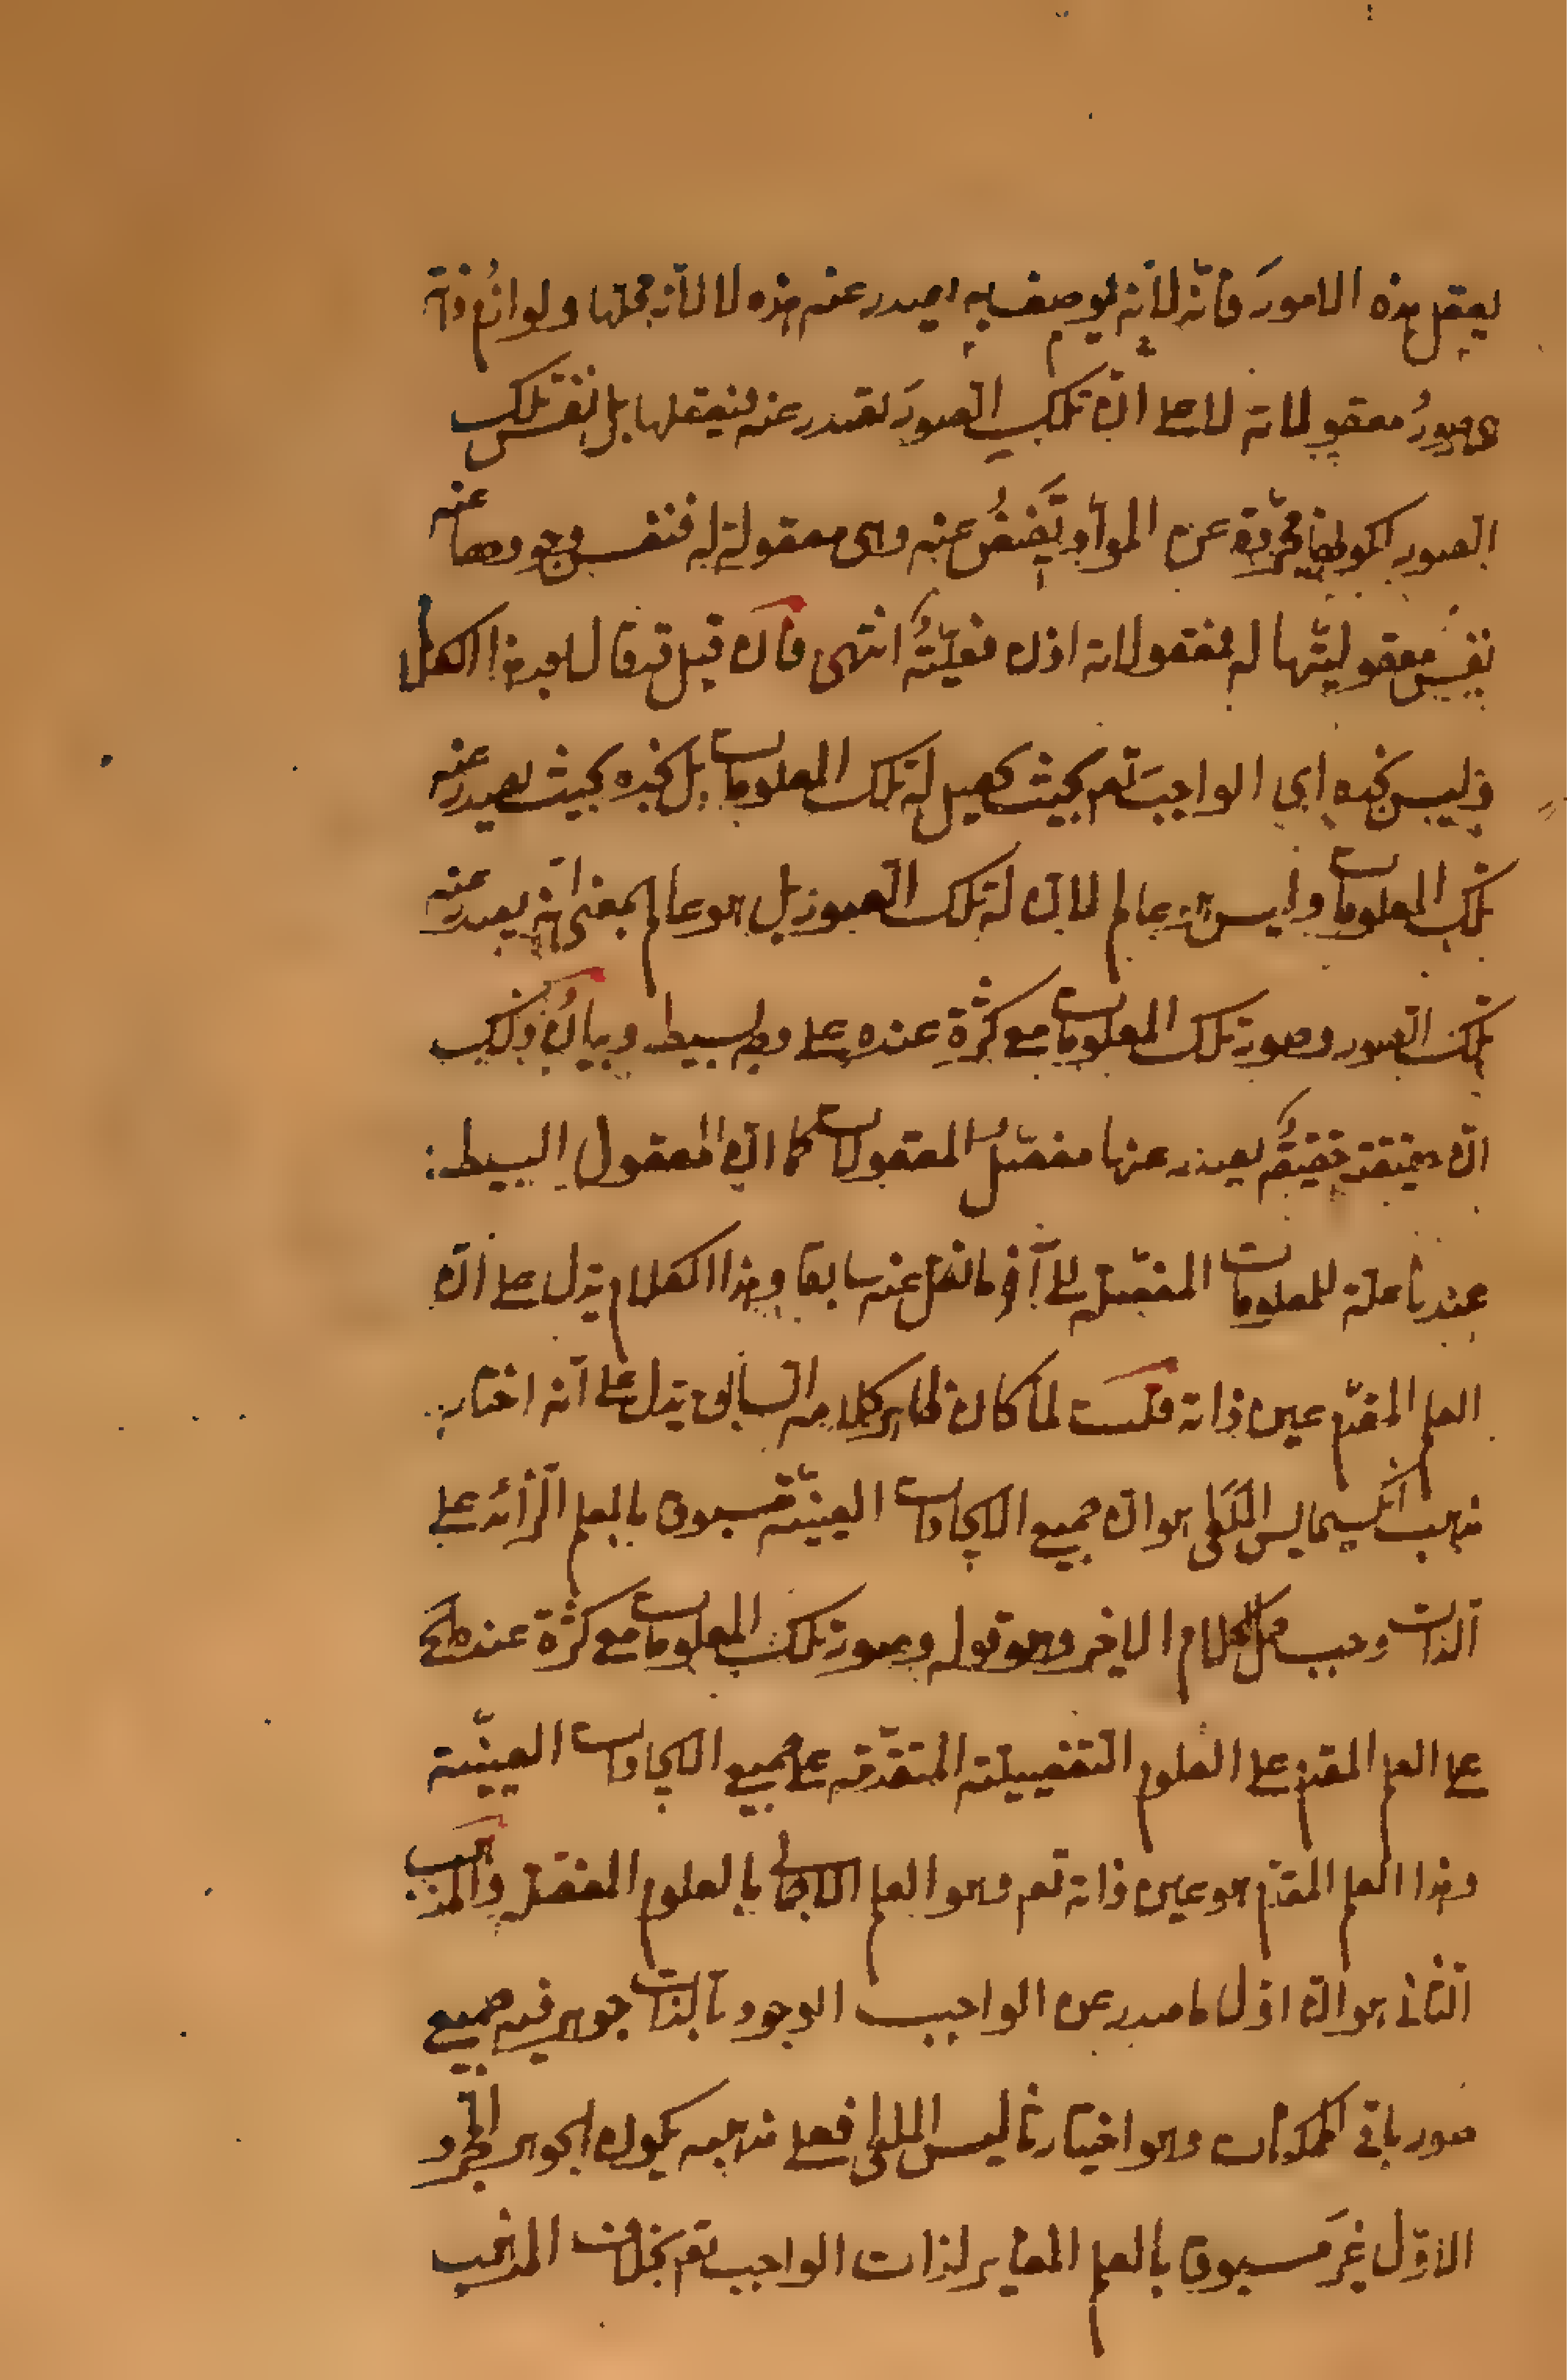 يعقل هذه الامورَ فانّه لأنّه يوصف به يصدر عنه هذه لا لأنّه محلّها ولوازُم ذاتهِ
هي صورُ معقولاته لا على انّ تلك الصورَ تصدر عنه فيعقلها بل نفس تلك
الصور لكونها مجرّدة عن الموادّ تَفيضُ عنه وهي معقولة له فنفس وجودها عنه
نفسُ معقوليّتها له فمعقولاته اذن فعليّةُ انتهى فان قيل قد قال بعد هذا الكلام
وليس مجده اي الواجبَ تعم بحيث يحصل له تلك المعلومات بل مجده بحيث يصدر عنه
تلك المعلومات وليس هو عالم لانّ له تلك الصور بل هو عالم بمعنى انّه يصدر عنه
تلك الصور وصور تلك المعلومات مع كثرة عنده على وجه بسيط وبيانُ ذلك
انّ حقيقته حقيقةُ يصدر عنها مفصّل المعقولات كما انّ المعقول البسيط
عندنا علة للمعلومات المفصّلة الى آخر ما نقل عنه سابقا وهذا الكلام يدل على انّ
العلم المقدّم عين ذاته قلت لما كان ظاهر كلامه السابق يدل على انه اختار
مذهب انكسيمايس الملطى هو انّ جميع الايجادات العينيّة مسبوق بالعلم الزائد على
الذات وجب حمل الكلام الاخير وهو قوله وصور تلك المعلومات مع كثرة عنده الخ
على العلم المقدم على العلوم التفصيلية المتقدّمة على جميع الايجادات العينيّة
وهذا العلم المقدّم هو عين ذاته تعم وهو العلم الاجمالى بالعلوم المفصّلة والمذهب
الثانى هو انّ اوّل ما صدر عن الواجب الوجود بالذات جوهر فيه جميع
صور باقي الممكنات وهو اختيار ثاليس الملطى فعلى مذهبه يكون الجوهر المجرد
الاوّل غيرَ مسبوق بالعلم المغاير لذات الواجب تعم بخلاف المذهب